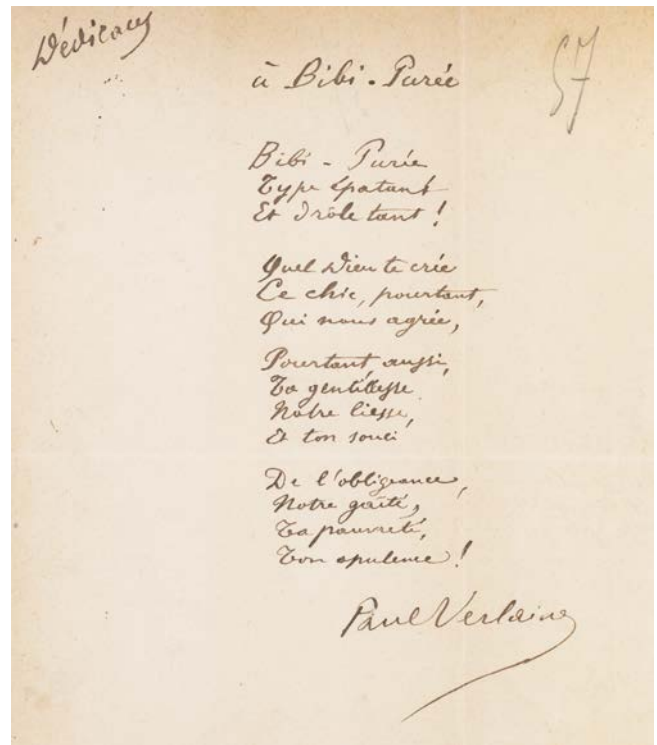 Dédicaces
57
à Bibi-Purée
Bibi-Purée
Type épatant
Et drôle tant !
Quel Dieu te crée
Ce chic, pourtant,
Qui nous agrée,
Pourtant, aussi,
Ta gentillesse
Notre liesse,
Et ton souci
De l'obligeance,
Notre gaîté,
Ta pauvreté,
Ton opulence !
Paul Verlaine